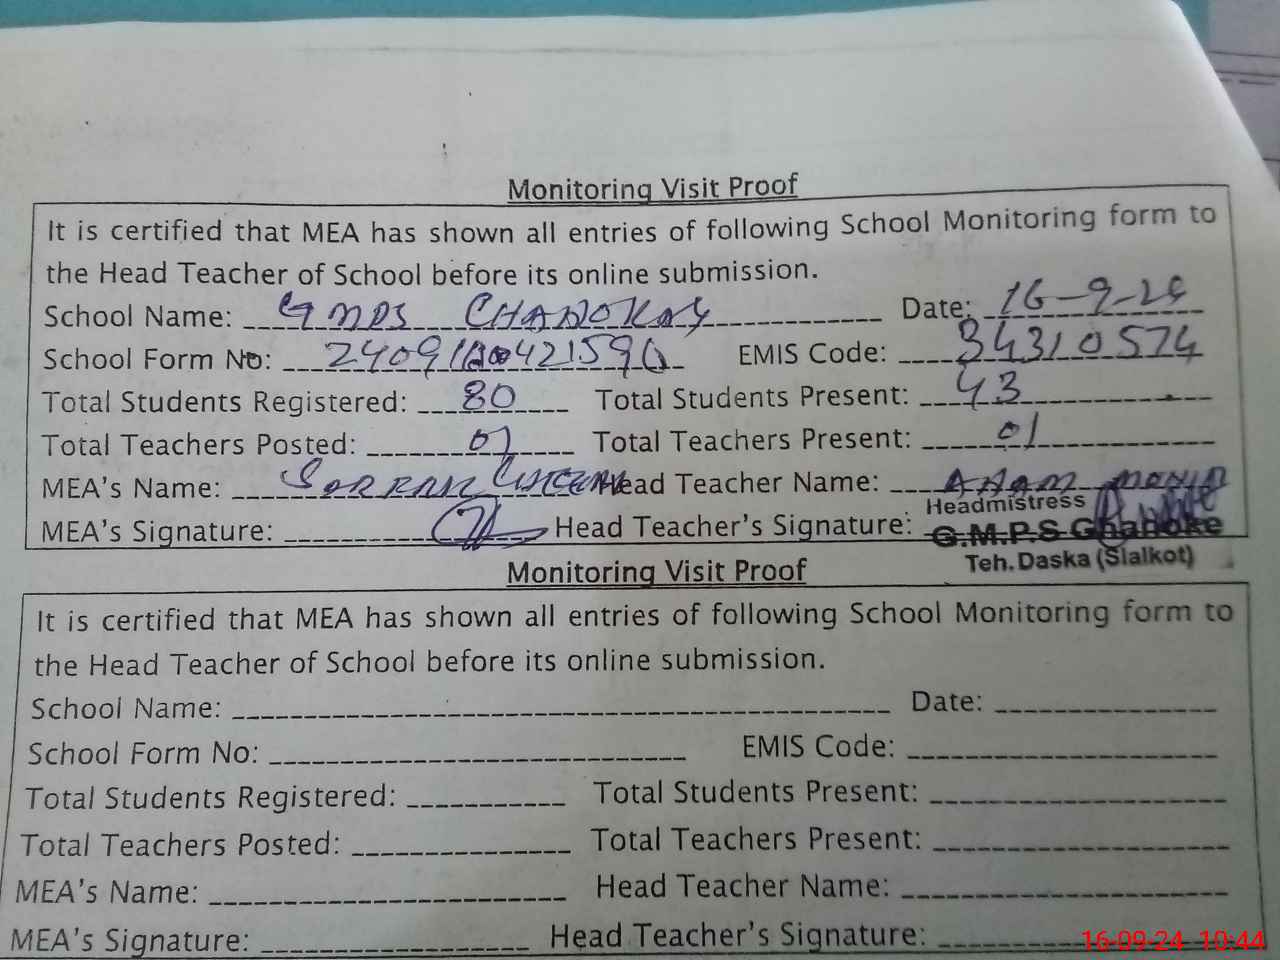 Monitoring Visit Proof
It is certified that MEA has shown all entries of following School Monitoring form to
the Head Teacher of School before its online submission.
School Name: GMPS Date: 16-9-24
School Form No: EMIS Code: 34310574
Total Students Registered: 80 Total Students Present: 43
Total Teachers Posted: 01 Total Teachers Present: 01
MEA's Name: Head Teacher Name:
Headmistress
MEA's Signature: Head Teacher's Signature: G.M.P.S Ghanoke
Teh. Daska (Sialkot)
Monitoring Visit Proof
It is certified that MEA has shown all entries of following School Monitoring form to
the Head Teacher of School before its online submission.
School Name: Date:
School Form No: EMIS Code:
Total Students Registered: Total Students Present:
Total Teachers Posted: Total Teachers Present:
MEA's Name: Head Teacher Name:
MEA's Signature: Head Teacher's Signature:
16-09-24 10:44